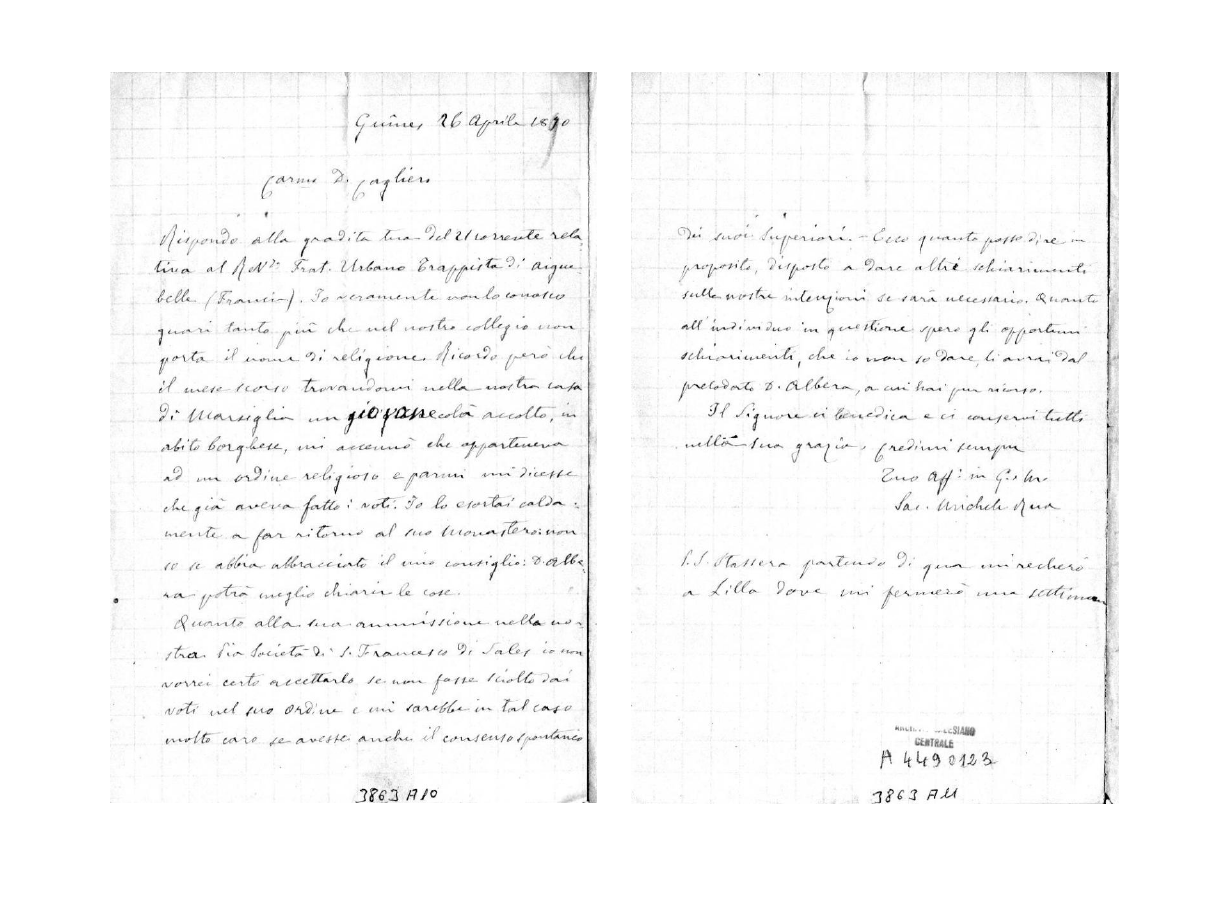 Guînes 26 Aprile 1890
Carmo D. Cagliero
Rispondo alla gradita tua del 21 corrente rela-
tiva al RevDo Frat. Urbano Trappista di Aigue
belle (Francia). Io veramente non lo conosco
guari tanto più che nel nostro collegio non
porta il nome di religione. Ricordo però che
il mese scorso trovandomi nella nostra casa
di Marsiglia un giovane colà accolto, in
abito borghese, mi accennò che apparteneva
ad un ordine religioso e parmi mi dicesse
che già aveva fatto i voti. Io lo esortai calda-
mente a far ritorno al suo Monastero: non
so se abbia abbracciato il mio consiglio: D. Albe-
ra potrà meglio chiarir le cose.
Quanto alla sua ammissione nella no-
stra Pia Società di S. Francesco di Sales io non
vorrei certo accettarlo se non fosse sciolto dai
voti nel suo ordine e mi sarebbe in tal caso
molto caro se avesse anche il consenso spontaneo
3863 A10
dei suoi Superiori. - Ecco quanto posso dire in
proposito, disposto a dare altri schiarimenti
sulle nostre intenzioni se sarà necessario. Quanto
all'individuo in questione spero gli opportuni
schiarimenti, che io non so dare, li avrai dal
prelodato D. Albera, a cui hai pur ricorso.
Il Signore ci benedica e ci conservi tutti
nella sua grazia. Credimi sempre
Tuo Aff. in G. e M.
Sac. Michele Rua
P.S. Stassera partendo di qua mi recherò
a Lilla dove mi fermerò una settimana
SALESIANO
CENTRALE
A 4490123
3863 A11